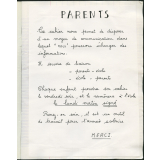 PARENTS
Ce cahier nous permet de disposer
d'un moyen de communication dans
lequel "nous" pouvons échanger des
informations.
Il servira de liaison
parents - école
école - parents
Chaque enfant prendra son cahier
le vendredi soir, et le ramènera à l'école
le lundi matin signé
travail pour l'année scolaire
MERCI